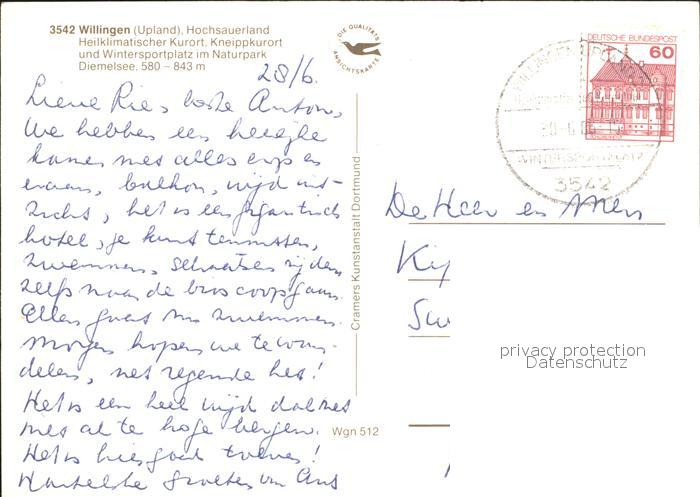 3542 Willingen (Upland), Hochsauerland
Heilklimatischer Kurort, Kneippkurort
und Wintersportplatz im Naturpark
Diemelsee, 580 – 843 m
DIE QUALITÄTS
ANSICHTSKARTE
DEUTSCHE BUNDESPOST
60
WINTERSPORTPLATZ
3542
28/6.
Lieve Ries, beste Anton,
We hebben een heerlijke
kamer met alles erop en
eraan, balkon, wijd uit-
zicht, het is een gigantisch
hotel, je kunt tennissen,
zwemmen, schaatsen rijden
zelfs naar de bioscoop gaan.
Ellen gaat nu zwemmen.
Morgen hopen we te wan-
delen, net regende het!
Het is een heel wijd dal met
niet al te hoge bergen.
Het is hier goed toeven!
Hartelijke groeten van Ans
De Heer en Mevr
Cramers Kunstanstalt Dortmund
Wgn 512
privacy protection
Datenschutz